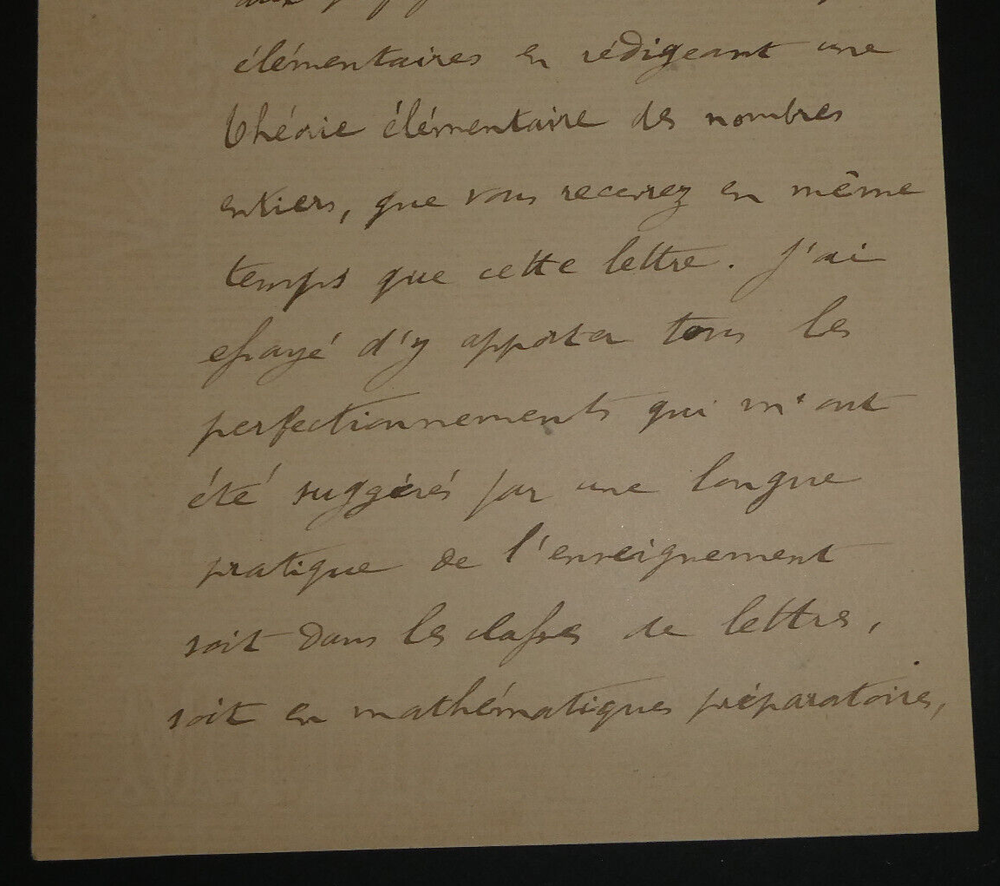 élémentaires en rédigeant une
théorie élémentaire des nombres
entiers, que vous recevrez en même
temps que cette lettre. J'ai
essayé d'y apporter tous les
perfectionnements qui m'ont
été suggérés par une longue
pratique de l'enseignement
soit dans les classes de lettres,
soit en mathématiques préparatoires,